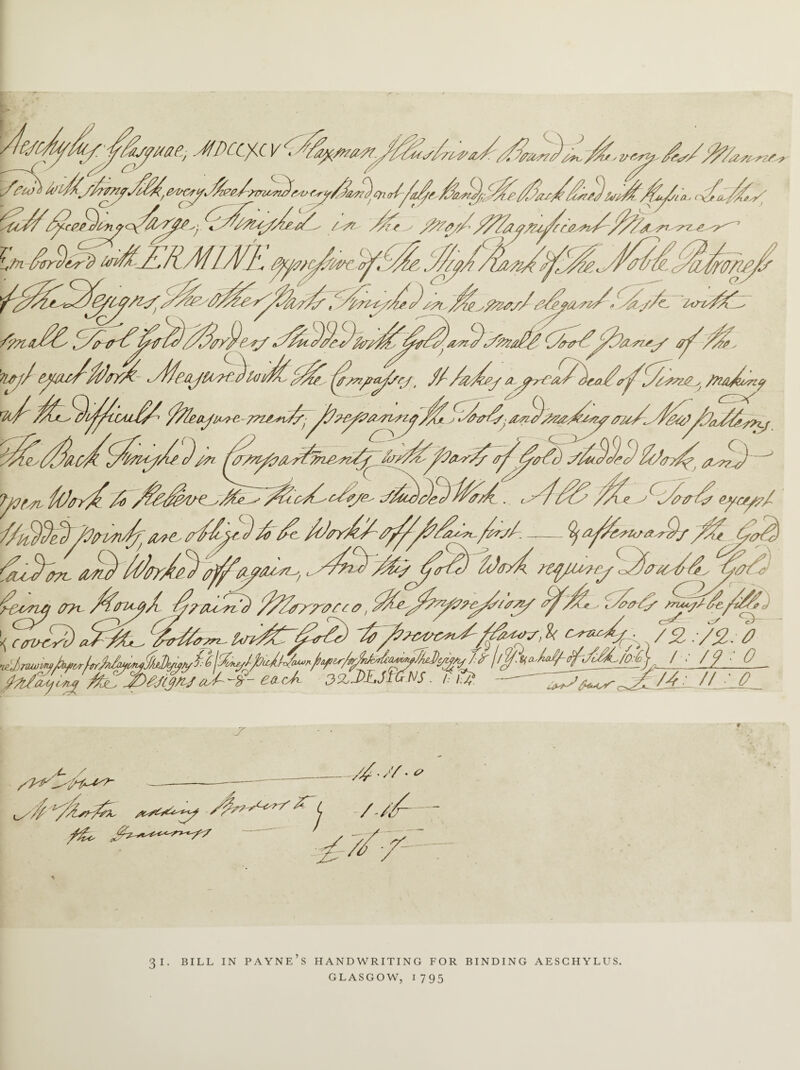 Æschylus Glasguae, MDCCXCV Flaxman Illustravit. Bound in the very best Manner
sew'd with strong Silk, every Sheet round every Band, not false Bands; The Back lined with Russia Leather,
Cutt Exceeding Large; Finished in the most Magnificent Manner
Em-border'd with ERMINE expressive of The High Rank of The Noble Patroness
of The Designs, The Other Parts Finished in the most elegant Taste with
small Tool Gold Borders Studded with Gold; and small Tool Panes of the
most exact Work Measured with The Compasses, It takes a great deal of Time, making
out The Difficult Measure-ments; preparing The Tools; and making out New Patterns.
The Back Finished in Compartments with parts of Gold studded Work, and
open Work to Relieve The Rich close studded Work. All The Tools except
Studded points, are obliged to be Work't off plain first. — & afterwards The Gold
laid on and Worked off again, And this Gold Work requires Double Gold
being on Rough Grain'd Morrocco, The Impressions of The Tools must be fill'd
& cover'd at The Bottom with Gold to prevent flaws, & cracks. 12 : 12. 0
Drawing paper for Inlaying The Designs 5 : 6 | Finest Pickt Lawn paper for Interleaving The Designs 1 : 8 | 1 Yd. & a half of Silk 10 : 6 1 : 19 : 0
Inlaying The Designs at -8- each 32 DESIGNS.
£ 14 : 11 : 0
14 . 11 . 0
Mr. Morton adding Borders to
the Drawings 1 . 16 —
£ 16 . 7 —
31. BILL IN PAYNE'S HANDWRITING FOR BINDING AESCHYLUS.
GLASGOW, 1795